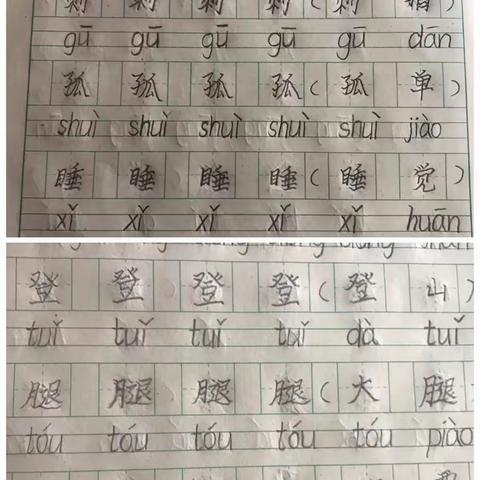 刺 刺 刺 刺 ( 刺 猬 )
gū gū gū gū gū dān
孤 孤 孤 孤 ( 孤 单 )
shuì shuì shuì shuì shuì jiào
睡 睡 睡 睡 ( 睡 觉 )
xǐ xǐ xǐ xǐ xǐ huān
登 登 登 登 ( 登 山 )
tuǐ tuǐ tuǐ tuǐ dà tuǐ
腿 腿 腿 腿 ( 大 腿
tóu tóu tóu tóu tóu piào